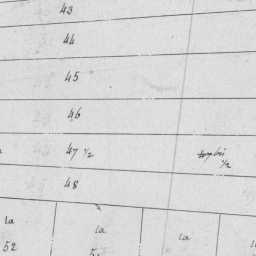 43
44
45
46
47 ½
½
48
la
la
la
52